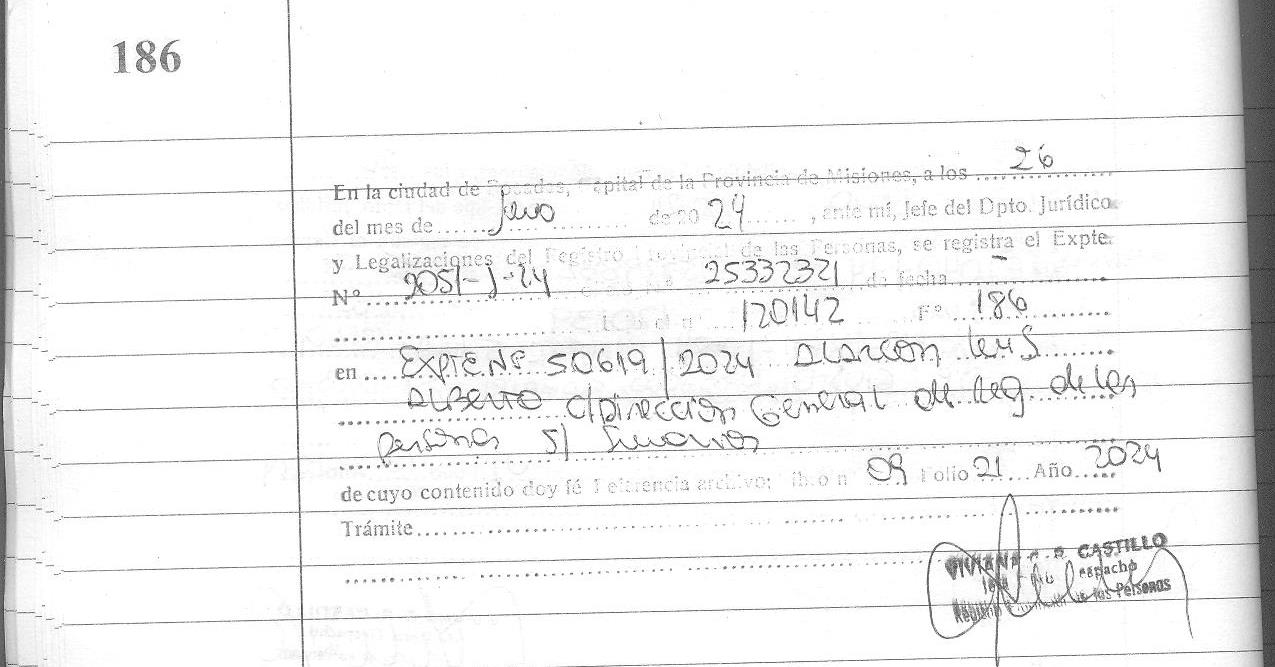 186
En la ciudad de Posadas, Capital de la Provincia de Misiones, a los ....26....
del mes de ...... de 20 24 ......, ante mí, Jefe del Dpto. Jurídico
y Legalizaciones del Registro Provincial de las Personas, se registra el Expte.
Nº .... 2051-J-24 25332321 de fecha ....
120142 Fº ..186....
en .... EXPTE.Nº 50619/2024 Alarcon Luis
Alberto c/Dirección General de Reg. de las
personas s/
de cuyo contenido doy fé Referencia archivo; libro nº 09 Folio 21 ... Año 2024
Trámite......
VIVIANA CASTILLO
Despacho
de las Personas